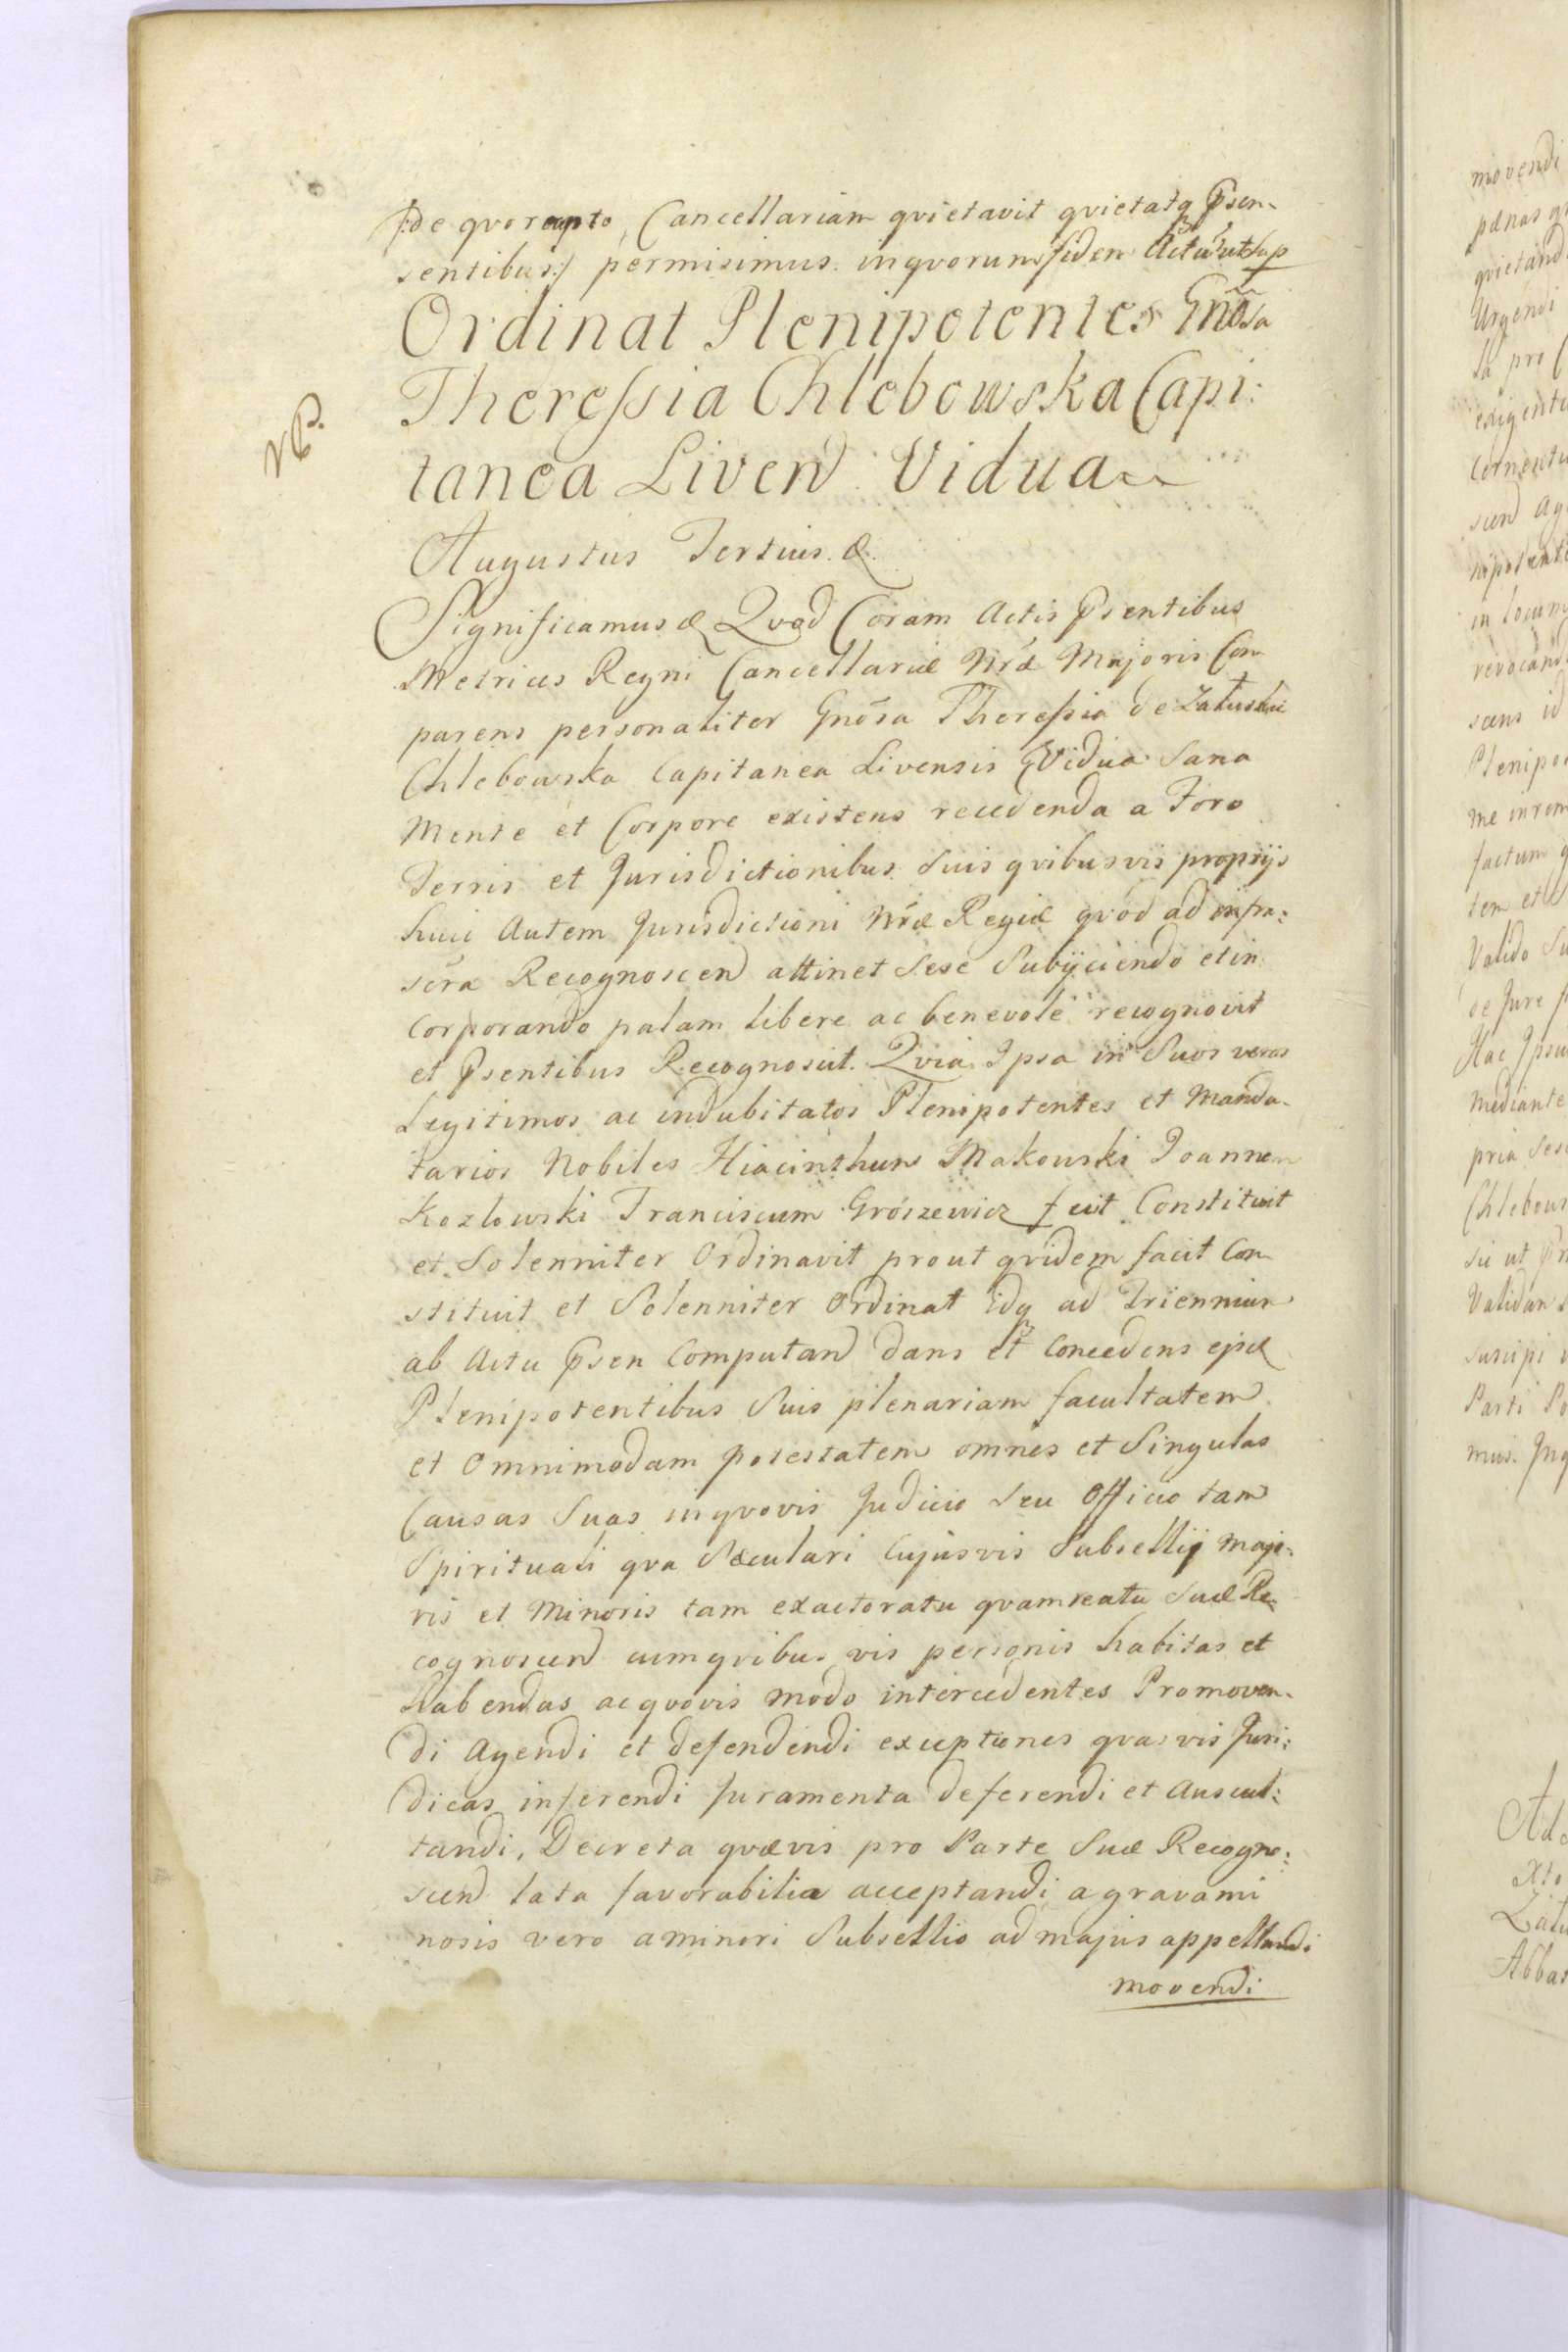 /:de qvorecepto, Cancellariam qvietavit qvietatq Psen-
sentibus:/ permisimus. inqvorum fidem Actũ ut sup
Ordinat Plenipotentes Gnõsa
Theressia Chlebowska Capi:
tanea Livend Vidua
Augustus Tertius &
Significamus & Qvod Coram Actis Psentibus
Metrices Regni Cancellariæ Nræ Majoris Com
parens personaliter Gnõsa Theressia de Załuskie
Chlebowska Capitanea Livensis Vidua Sana
Mente et Corpore existens recedenda a Foro
Terris et Jurisdictionibus Suis qvibusvis proprijs
huic Autem Jurisdictioni Nræ Regiæ qvod ad infra:
scra Recognoscend attinet Sese Subijciendo et in
corporando palam libere ac benevole recognovit
et Psentibus Recognoscit. Qvia Ipsa in Suos veros
Legitimos ac indubitatos Plenipotentes et Manda-
tarios Nobiles Hiacinthum Makowski Joannem
Kozlowski Franciscum Grószewicz fecit Constituit
et Solenniter Ordinavit prout qvidem facit Con
stituit et Solenniter Ordinat idq ad Triennium
ab Actu Psen Computand dans et Concedens ejsd
Plenipotentibus Suis plenariam facultatem
et Omnimodam potestatem omnes et Singulas
Causas Suas inqvovis Judicio Seu Officio tam
Spirituali qva Sæculari Cujusvis Subsellij Majo:
ris et Minoris tam exactoratu qvam reatu Suæ Re
cognoscend cum qvibus vis personis habitas et
habendas ac qvovis modo intercedentes Promoven-
di Agendi et defendendi exceptiones qvasvis Juri:
dicas inferendi Juramenta deferendi et Auscul:
tandi, Decreta qvævis pro Parte Suæ Recogno:
scend lata favorabilia acceptandi a gravami
nosis vero a minori Subsellio ad majus appellandi
movendi
movendi
pænas
qvietand
Urgendi
pro
in locum
id
factum
et
Valido
de Jure
Hac
Mediante
pria
ut
Parti
mus.